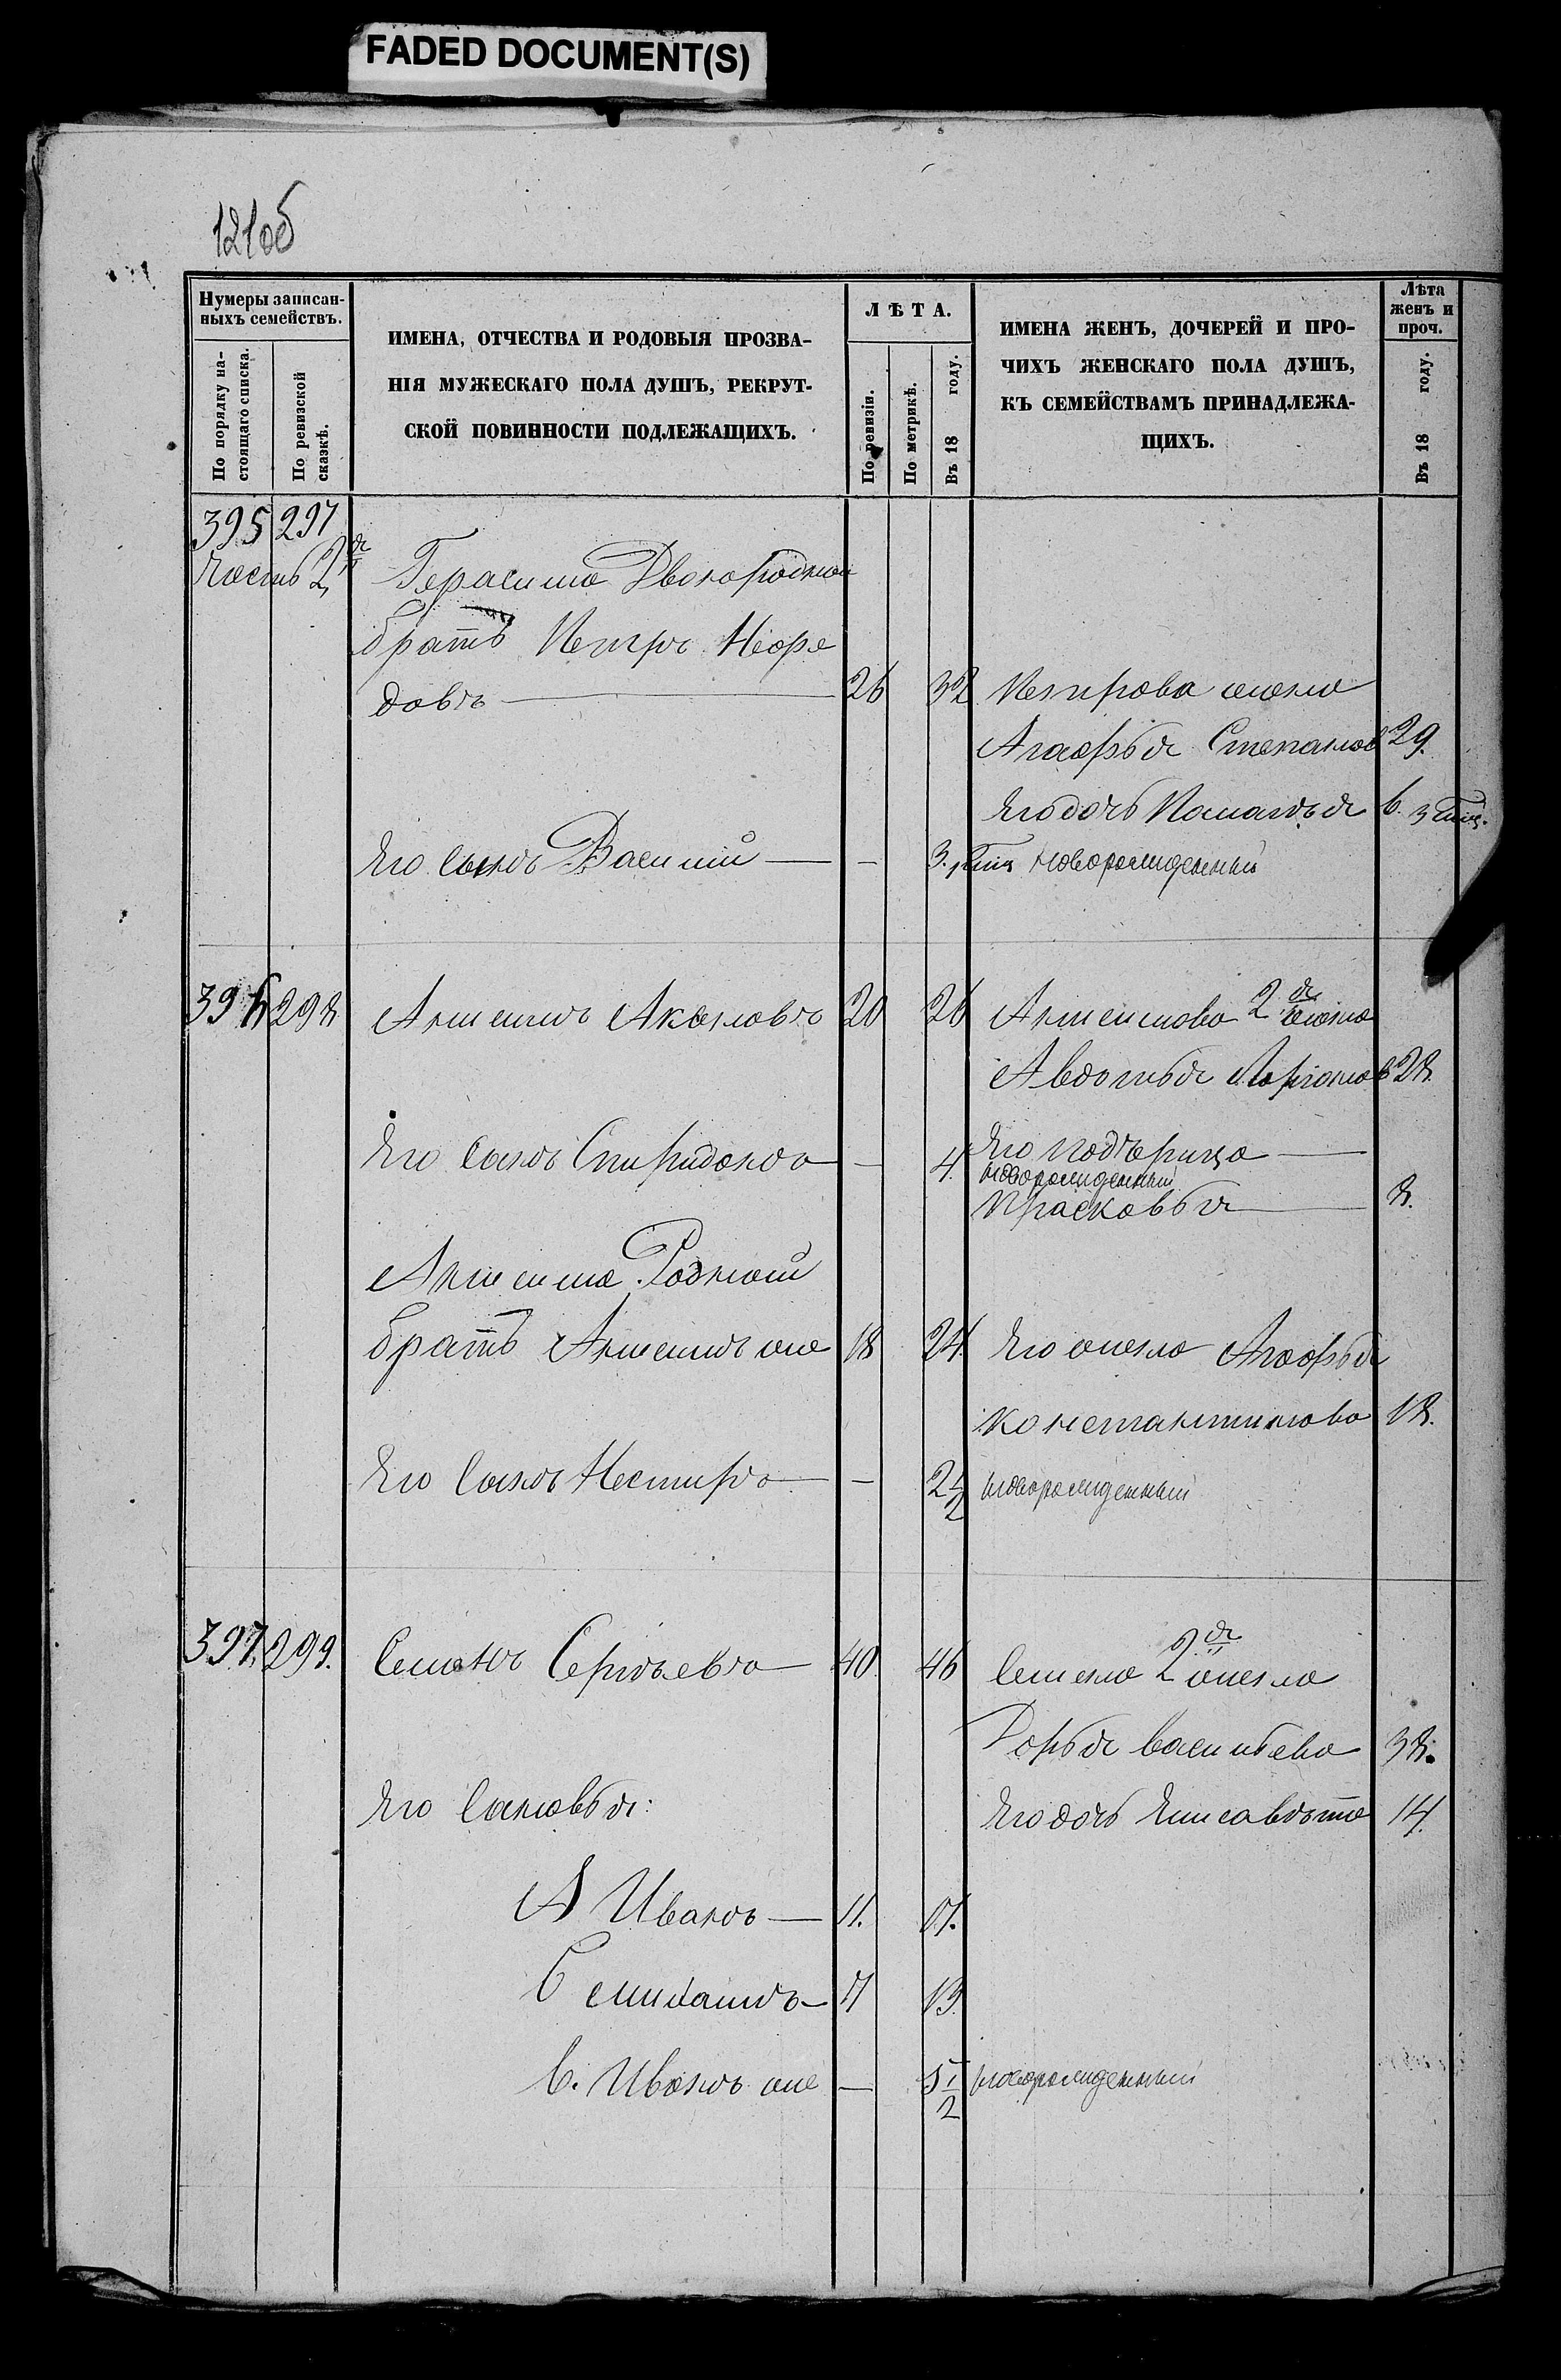 FADED DOCUMENT(S)
121об
Нумеры записан-
ныхъ семействъ.
По порядку на-
стоящаго списка.
По ревизской
сказкѣ.
ИМЕНА, ОТЧЕСТВА И РОДОВЫЯ ПРОЗВА-
НІЯ МУЖЕСКАГО ПОЛА ДУШЪ, РЕКРУТ-
СКОЙ ПОВИННОСТИ ПОДЛЕЖАЩИХЪ.
ЛѢТА.
По ревизіи.
По метрикѣ.
Въ 18 году.
ИМЕНА ЖЕНЪ, ДОЧЕРЕЙ И ПРО-
ЧИХЪ ЖЕНСКАГО ПОЛА ДУШЪ,
КЪ СЕМЕЙСТВАМЪ ПРИНАДЛЕЖА-
ЩИХЪ.
Лѣта
женъ и
проч.
Въ 18 году.
395 297
Часть 2я Герасима Двоюродной
братъ Петръ Неоре
довъ — 26 32 Петрова жена
Агафья Степанов 29.
Его дочь Пелагѣя 6. 3 мѣс.
Его сынъ Василій — — 3. мѣц новорожденный
396 298 Анисимъ Акимовъ 20 26 Анисимова 2я жена
Авдотья Ларіонов 28.
Его сынъ Спиридонъ — — 4. Его падчерица —
новорожденный
Прасковья — 8.
Анисима Родной
братъ Анисимъ же 18 24. Его жена Агафья
Константинова 18.
Его сынъ Нестиръ — — 2 1/2 новорожденный
397. 299. Семенъ Сергѣевъ — 40 46 Семена 2я жена
Дарья Васильева 38.
Его сыновья: Его дочь Елисавѣта 14.
А Иванъ — 11. 17.
Б — 7 13.
В. Иванъ же — 5 1/2 новорожденный